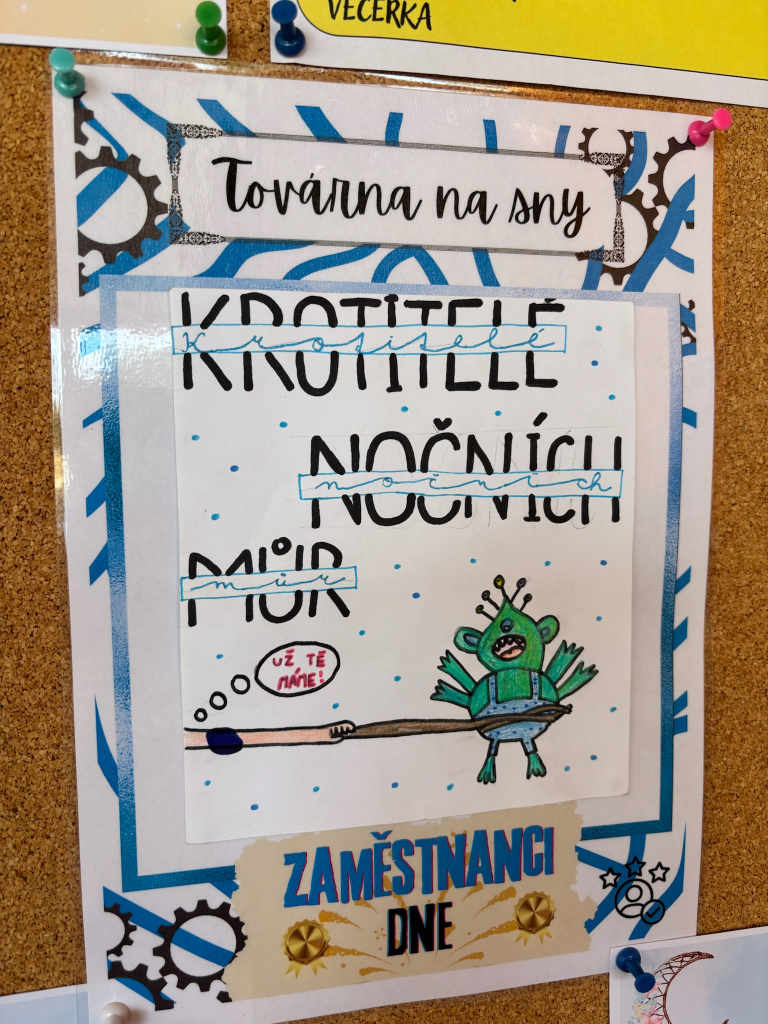 VEČERKA
Továrna na sny
KROTITELÉ
krotitelé
NOČNÍCH
nočních
MŮR
můr
UŽ TĚ
MÁME!
ZAMĚSTNANCI
DNE